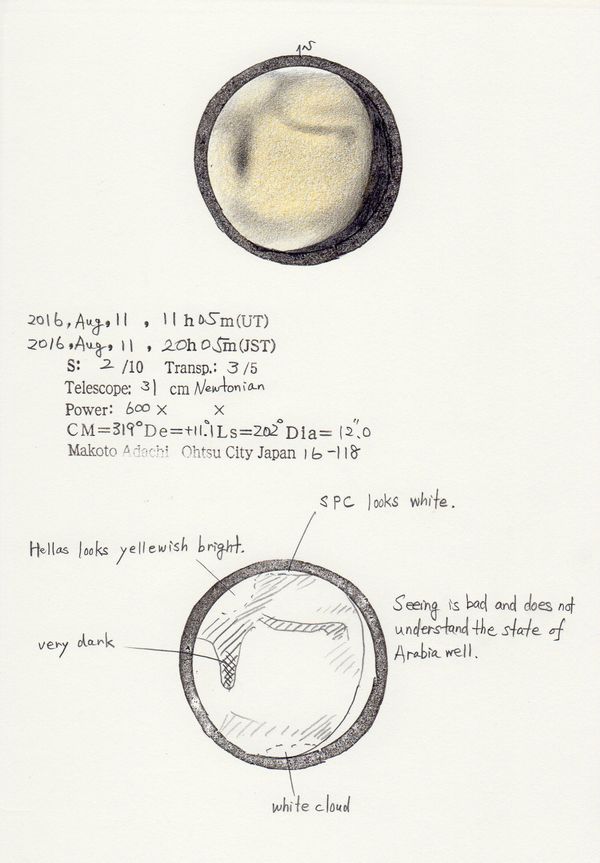 2016, Aug, 11 , 11 h 05 m (UT)
2016, Aug, 11 , 20 h 05 m (JST)
S: 2 /10 Transp.: 3 /5
Telescope: 31 cm Newtonian
Power: 600 × ×
CM=319° De=+11.°1 Ls=202° Dia= 12".0
Makoto Adachi Ohtsu City Japan 16-118
SPC looks white.
Hellas looks yellewish bright.
Seeing is bad and does not
understand the state of
Arabia well.
very dark
white cloud